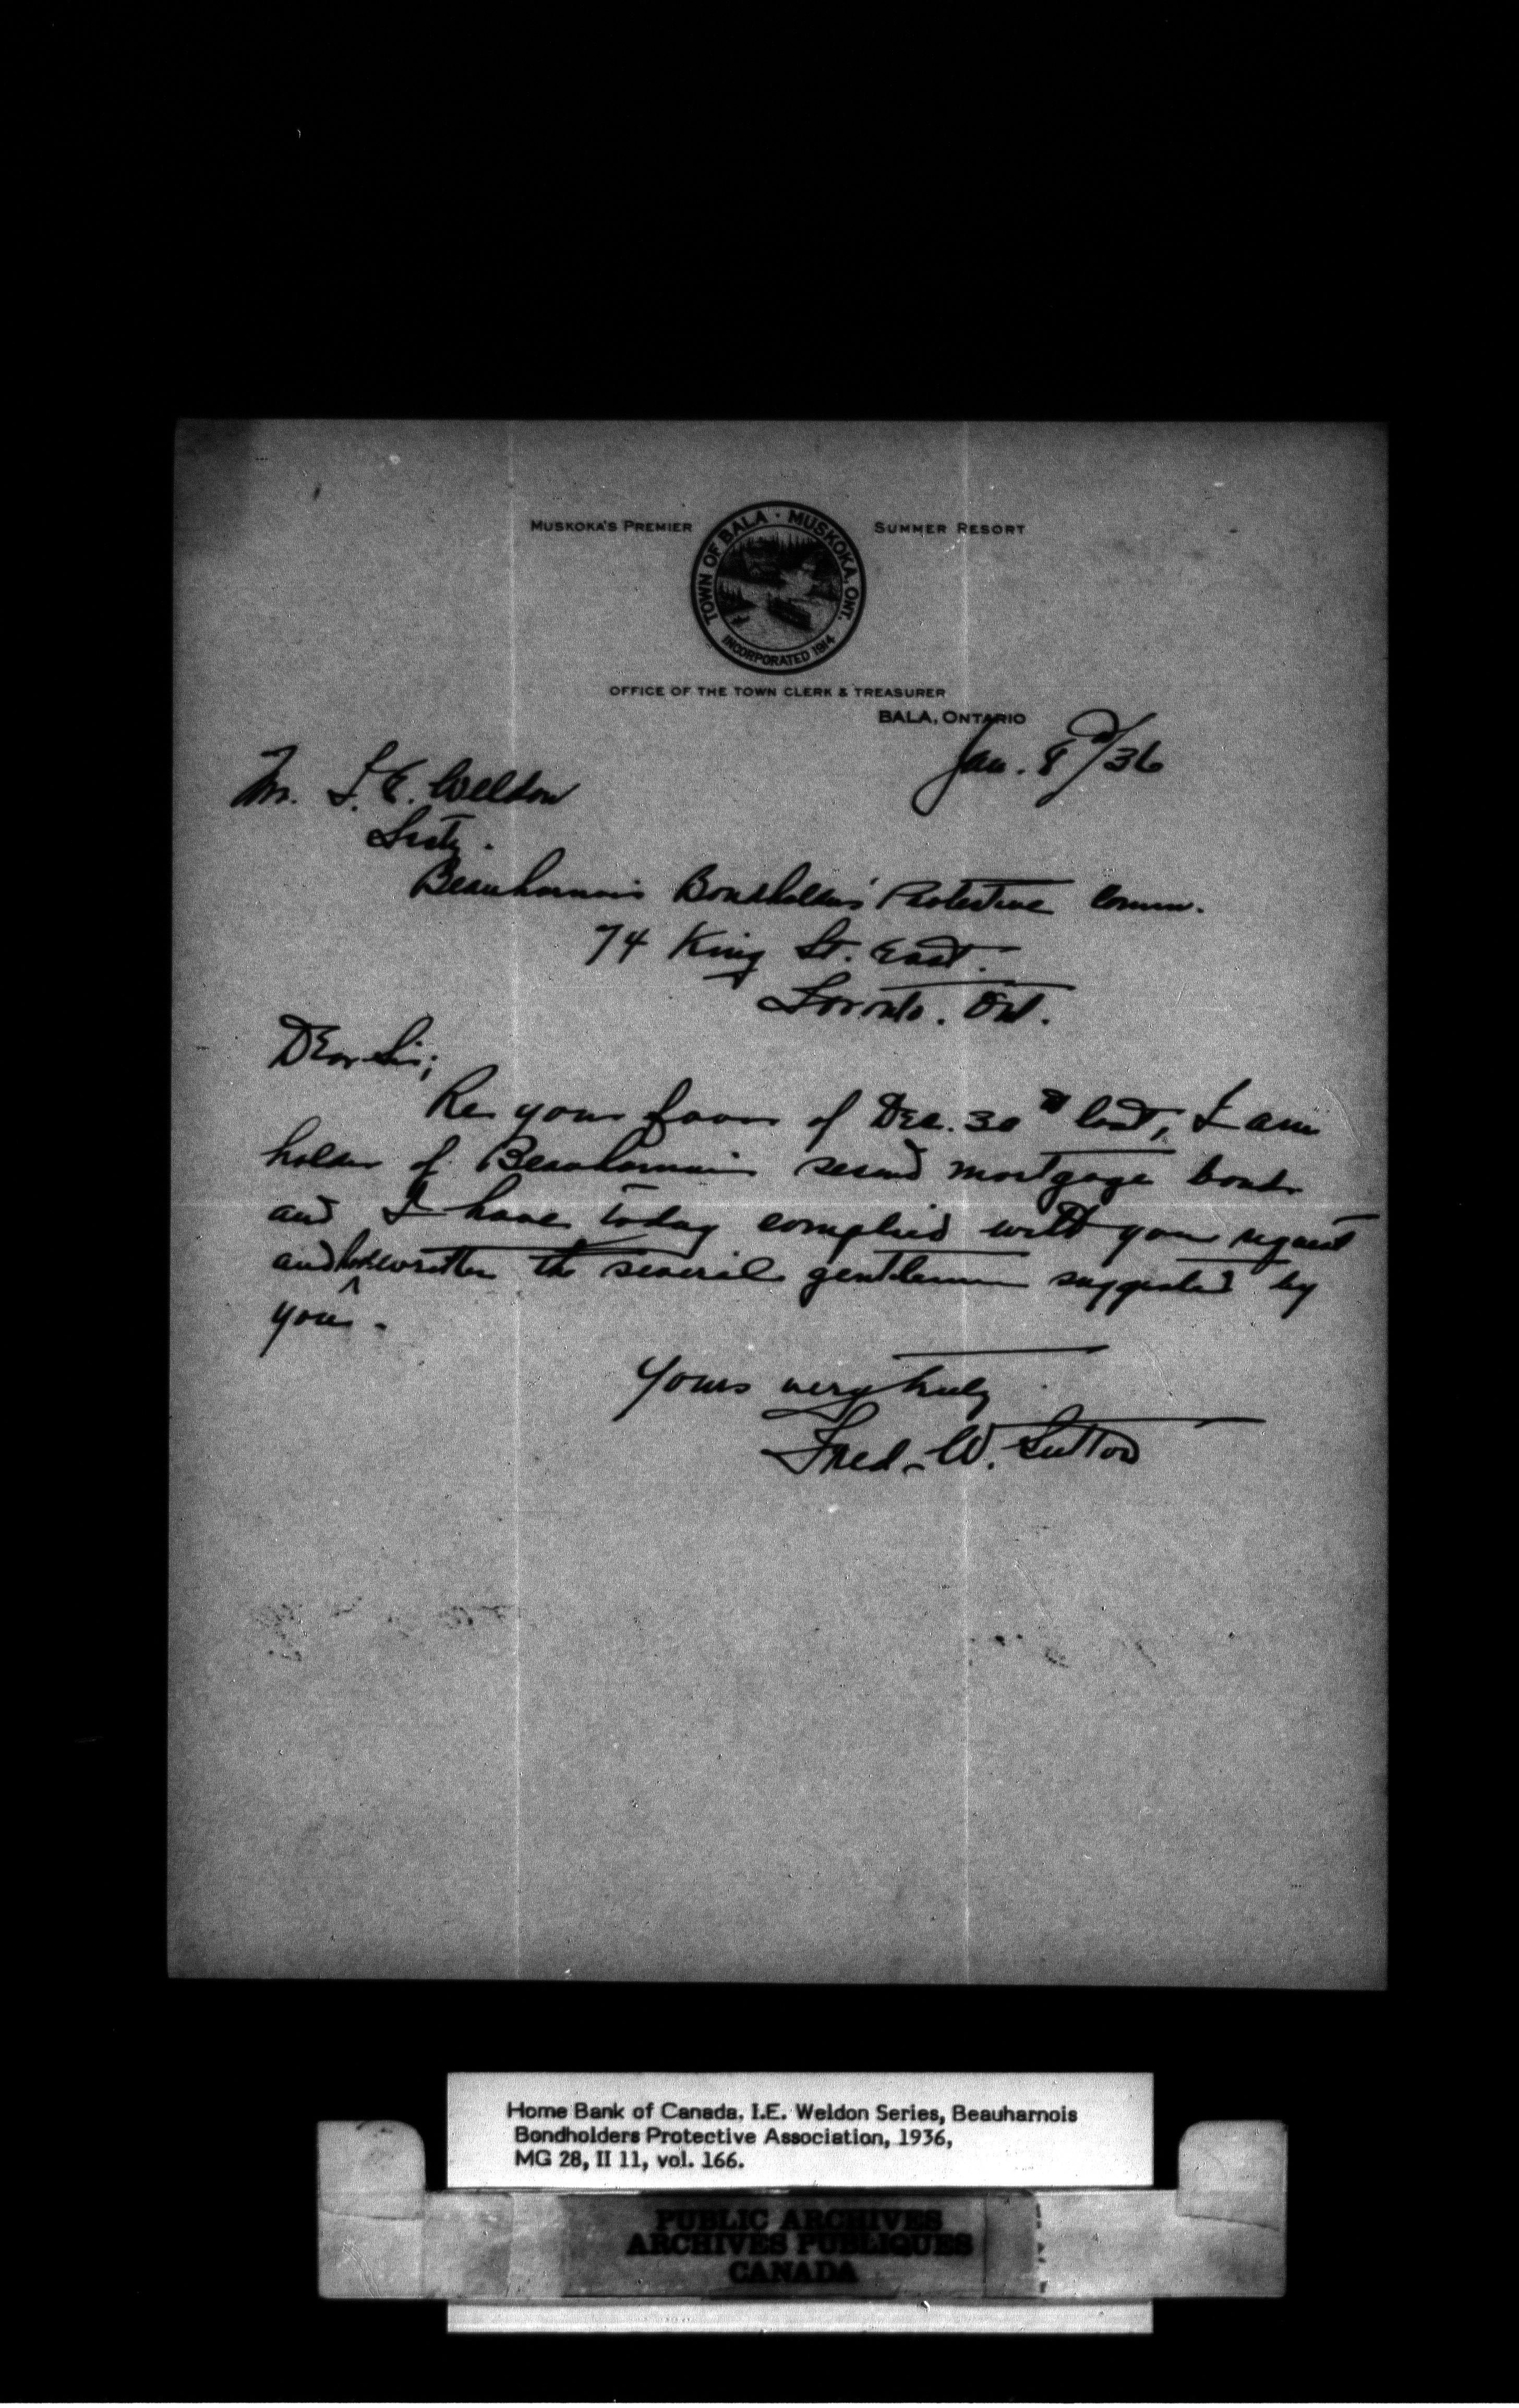 MUSKOKA'S PREMIER SUMMER RESORT
TOWN OF BALA · MUSKOKA, ONT.
INCORPORATED 1914
OFFICE OF THE TOWN CLERK & TREASURER
BALA, ONTARIO
Jan. 8th/36
Mr. I. E. Weldon
Secty.
Beauharnois Bondholders' Protective Comm.
74 King St. East.
Toronto. Ont.
Dear Sir;
Re your favor of Dec. 30th last, I am
holder of Beauharnois second mortgage bonds
and I have today complied with your request
and have written the several gentlemen suggested by
you.
Yours very truly
Fred. W. Sutton
Home Bank of Canada, I.E. Weldon Series, Beauharnois
Bondholders Protective Association, 1936,
MG 28, II 11, vol. 166.
PUBLIC ARCHIVES
ARCHIVES PUBLIQUES
CANADA